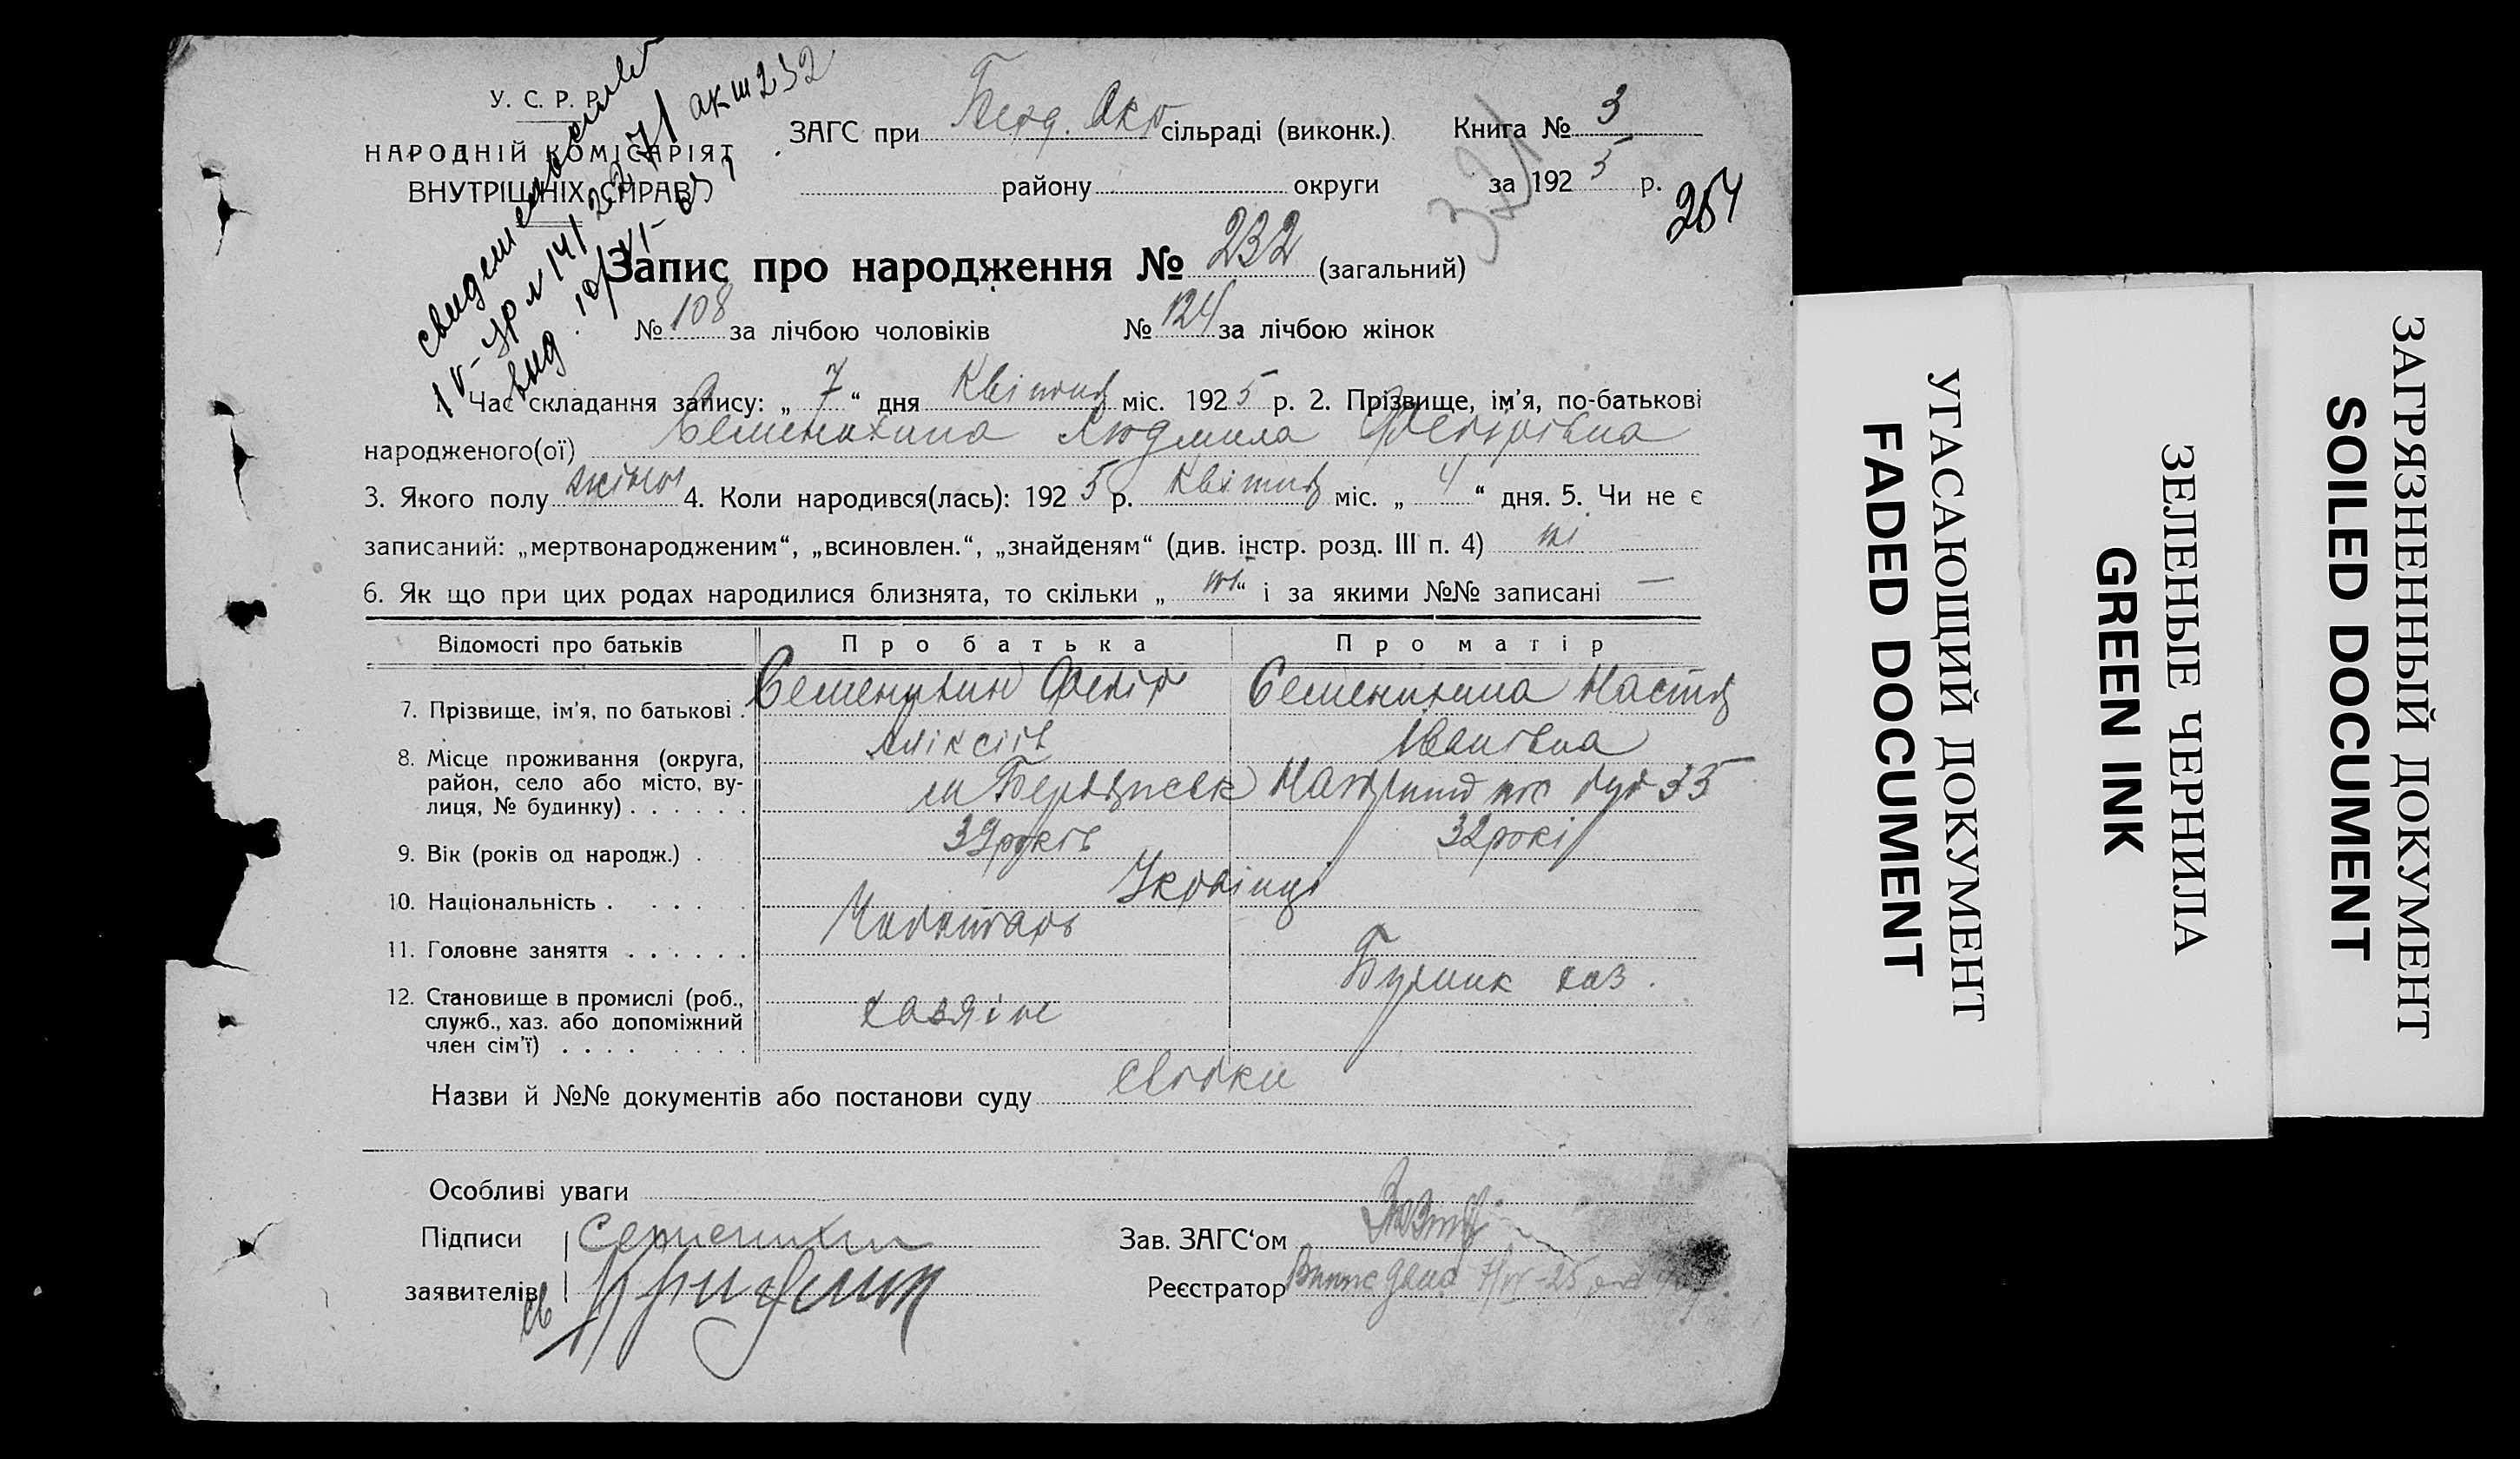 свидетельство
У. С. Р. Р.
НАРОДНІЙ КОМІСАРІЯТ
ВНУТРІШНІХ СПРАВ
акт 232
ЗАГС при Берд. Окр сільраді (виконк.) Книга № 3
району округи за 1925 р.
321
254
Запис про народження № 232 (загальний)
№ 108 за лічбою чоловіків № 124 за лічбою жінок
1. Час складання запису: „ 7 “ дня Квітня міс. 1925 р. 2. Прізвище, ім’я, по-батькові
народженого(ої) Семенихина Людмила Федірівна
3. Якого полу жіноч 4. Коли народився(лась): 1925 р. Квітня міс. „ 4 “ дня. 5. Чи не є
записаний: „мертвонародженим“, „всиновлен.“, „знайденям“ (див. інстр. розд. III п. 4) ні
6. Як що при цих родах народилися близнята, то скільки „ ні “ і за якими №№ записані —
Відомості про батьків Про батька Про матір
7. Прізвище, ім’я, по батькові . Семенихин Федір Семенихина Настя
Аліксіїв Іванівна
8. Місце проживання (округа,
район, село або місто, ву-
лиця, № будинку) . . . . . . м Бердянськ 35
9. Вік (років од народж.) . 39 років 32 рокі
10. Національність . . . . Українці
11. Головне заняття . . . . . .
12. Становище в промислі (роб.,
служб., хаз. або допоміжний
член сім’ї) . . . . . . . . хазяїн
хаз.
Назви й №№ документів або постанови суду свідки
Особливі уваги
Підписи Семенихин Зав. ЗАГС‘ом
заявителів Реєстратор
УГАСАЮЩИЙ ДОКУМЕНТ
FADED DOCUMENT
ЗЕЛЕНЫЕ ЧЕРНИЛА
GREEN INK
ЗАГРЯЗНЕННЫЙ ДОКУМЕНТ
SOILED DOCUMENT